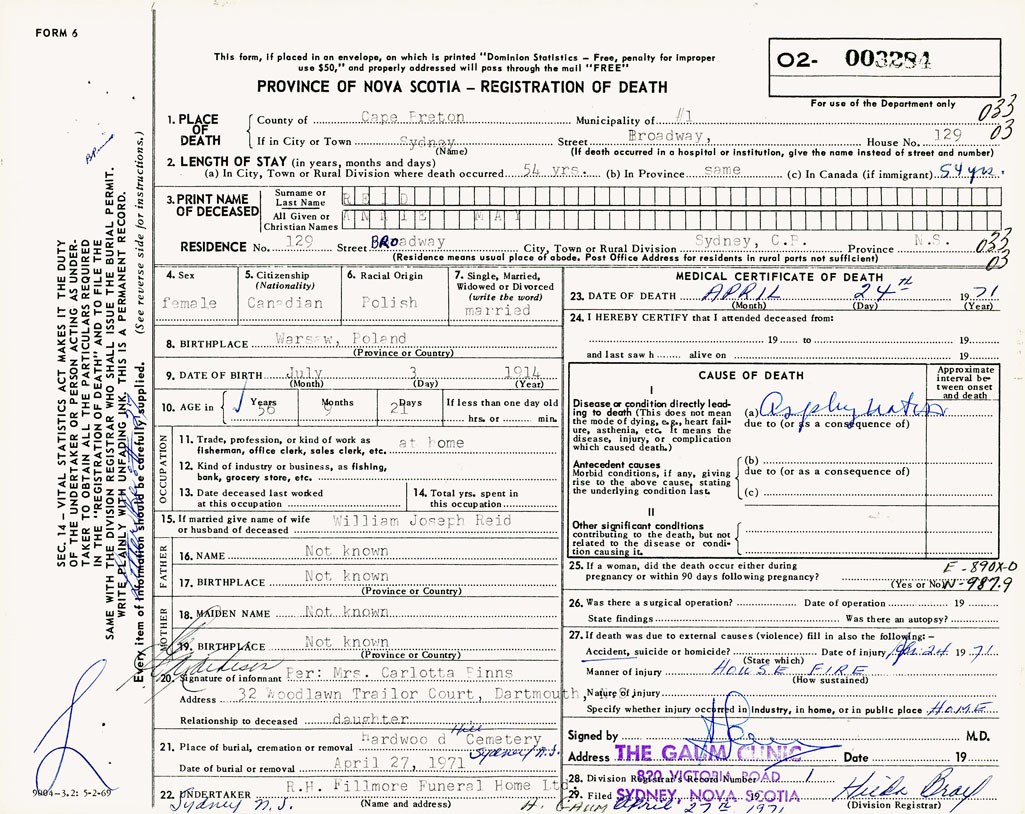 FORM 6
This form, if placed in an envelope, on which is printed "Dominion Statistics – Free, penalty for improper
use $50," and properly addressed will pass through the mail "FREE"
PROVINCE OF NOVA SCOTIA – REGISTRATION OF DEATH
O2- 003284
For use of the Department only
033
03
1. PLACE OF DEATH
County of Cape Breton Municipality of #1
If in City or Town Sydney Street Broadway, House No. 129
(Name) (If death occurred in a hospital or institution, give the name instead of street and number)
2. LENGTH OF STAY (in years, months and days)
(a) In City, Town or Rural Division where death occurred 54 yrs. (b) In Province same (c) In Canada (if immigrant) 54 yrs.
3. PRINT NAME OF DECEASED
Surname or Last Name REID
All Given or Christian Names ANNIE MAY
RESIDENCE No. 129 Street BROadway City, Town or Rural Division Sydney, C.B. Province N.S.
(Residence means usual place of abode. Post Office Address for residents in rural parts not sufficient)
033
03
4. Sex
female
5. Citizenship
(Nationality)
Canadian
6. Racial Origin
Polish
7. Single, Married,
Widowed or Divorced
(write the word)
married
8. BIRTHPLACE Warsaw, Poland
(Province or Country)
9. DATE OF BIRTH July 3 1914
(Month) (Day) (Year)
10. AGE in
Years Months Days If less than one day old
56 9 21 hrs. or min.
OCCUPATION
11. Trade, profession, or kind of work as
fisherman, office clerk, sales clerk, etc. at home
12. Kind of industry or business, as fishing,
bank, grocery store, etc.
13. Date deceased last worked
at this occupation
14. Total yrs. spent in
this occupation
15. If married give name of wife
or husband of deceased William Joseph Reid
FATHER
16. NAME Not known
17. BIRTHPLACE Not known
(Province or Country)
MOTHER
18. MAIDEN NAME Not known
19. BIRTHPLACE Not known
(Province or Country)
20. Signature of informant Per: Mrs. Carlotta Binns
Address 32 Woodlawn Trailor Court, Dartmouth,
Relationship to deceased daughter
21. Place of burial, cremation or removal Hardwood Hill Cemetery
Sydney N.S.
Date of burial or removal April 27, 1971
22. UNDERTAKER R.H. Fillmore Funeral Home Ltd
Sydney N.S. (Name and address)
MEDICAL CERTIFICATE OF DEATH
23. DATE OF DEATH APRIL 24TH 1971
(Month) (Day) (Year)
24. I HEREBY CERTIFY that I attended deceased from:
19 to 19
and last saw h alive on 19
CAUSE OF DEATH
Approximate
interval be-
tween onset
and death
I
Disease or condition directly lead-
ing to death (This does not mean
the mode of dying, e.g., heart fail-
ure, asthenia, etc. It means the
disease, injury, or complication
which caused death.)
(a) Asphyxiation
due to (or as a consequence of)
Antecedent causes
Morbid conditions, if any, giving
rise to the above cause, stating
the underlying condition last.
(b)
due to (or as a consequence of)
(c)
II
Other significant conditions
contributing to the death, but not
related to the disease or condi-
tion causing it.
25. If a woman, did the death occur either during
pregnancy or within 90 days following pregnancy?
(Yes or No)
E-890X-0
N-987.9
26. Was there a surgical operation? Date of operation 19
State findings Was there an autopsy?
27. If death was due to external causes (violence) fill in also the following:–
Accident, suicide or homicide? Date of injury Apr. 24 1971
(State which)
Manner of injury HOUSE FIRE
(How sustained)
Nature of injury
Specify whether injury occurred in industry, in home, or in public place HOME
Signed by M.D.
Address THE GAUM CLINIC Date 19
820 VICTORIA ROAD
SYDNEY, NOVA SCOTIA
28. Division Registrar's Record Number 1
29. Filed April 27th 1971 Hilda Bray
(Division Registrar)
H. GAUM
SEC. 14 – VITAL STATISTICS ACT MAKES IT THE DUTY
OF THE UNDERTAKER OR PERSON ACTING AS UNDER-
TAKER TO OBTAIN ALL THE PARTICULARS REQUIRED
IN THE "REGISTRATION OF DEATH" AND TO FILE THE
SAME WITH THE DIVISION REGISTRAR WHO SHALL ISSUE THE BURIAL PERMIT.
WRITE PLAINLY WITH UNFADING INK. THIS IS A PERMANENT RECORD.
Every item of information should be carefully supplied. (See reverse side for instructions.)
9004-3.2: 5-2-69